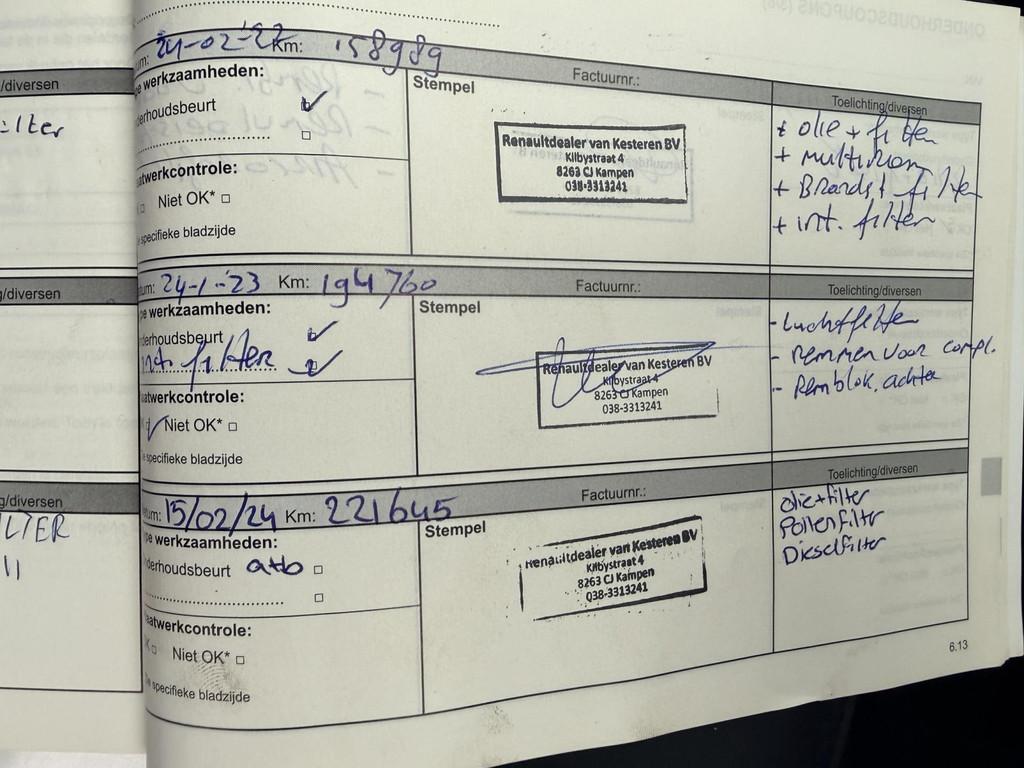 24-02-'22 Km: 158989
werkzaamheden:
Stempel
Factuurnr.:
Toelichting/diversen
Renaultdealer van Kesteren BV
Kilbystraat 4
8263 CJ Kampen
038-3313241
+ olie + filter
+ Brandst filter
+ int. filter
Niet OK* □
specifieke bladzijde
24-1-'23 Km: 194760
werkzaamheden:
int. filter
Stempel
Factuurnr.:
Toelichting/diversen
Renaultdealer van Kesteren BV
Kilbystraat 4
8263 CJ Kampen
038-3313241
- Luchtfilter
- Remmen voor compl.
- Remblok. achter
Niet OK* □
specifieke bladzijde
15/02/24 Km: 221645
werkzaamheden:
Stempel
Factuurnr.:
Toelichting/diversen
Renaultdealer van Kesteren BV
Kilbystraat 4
8263 CJ Kampen
038-3313241
olie+filter
Pollenfilter
Dieselfilter
Niet OK* □
specifieke bladzijde
6.13